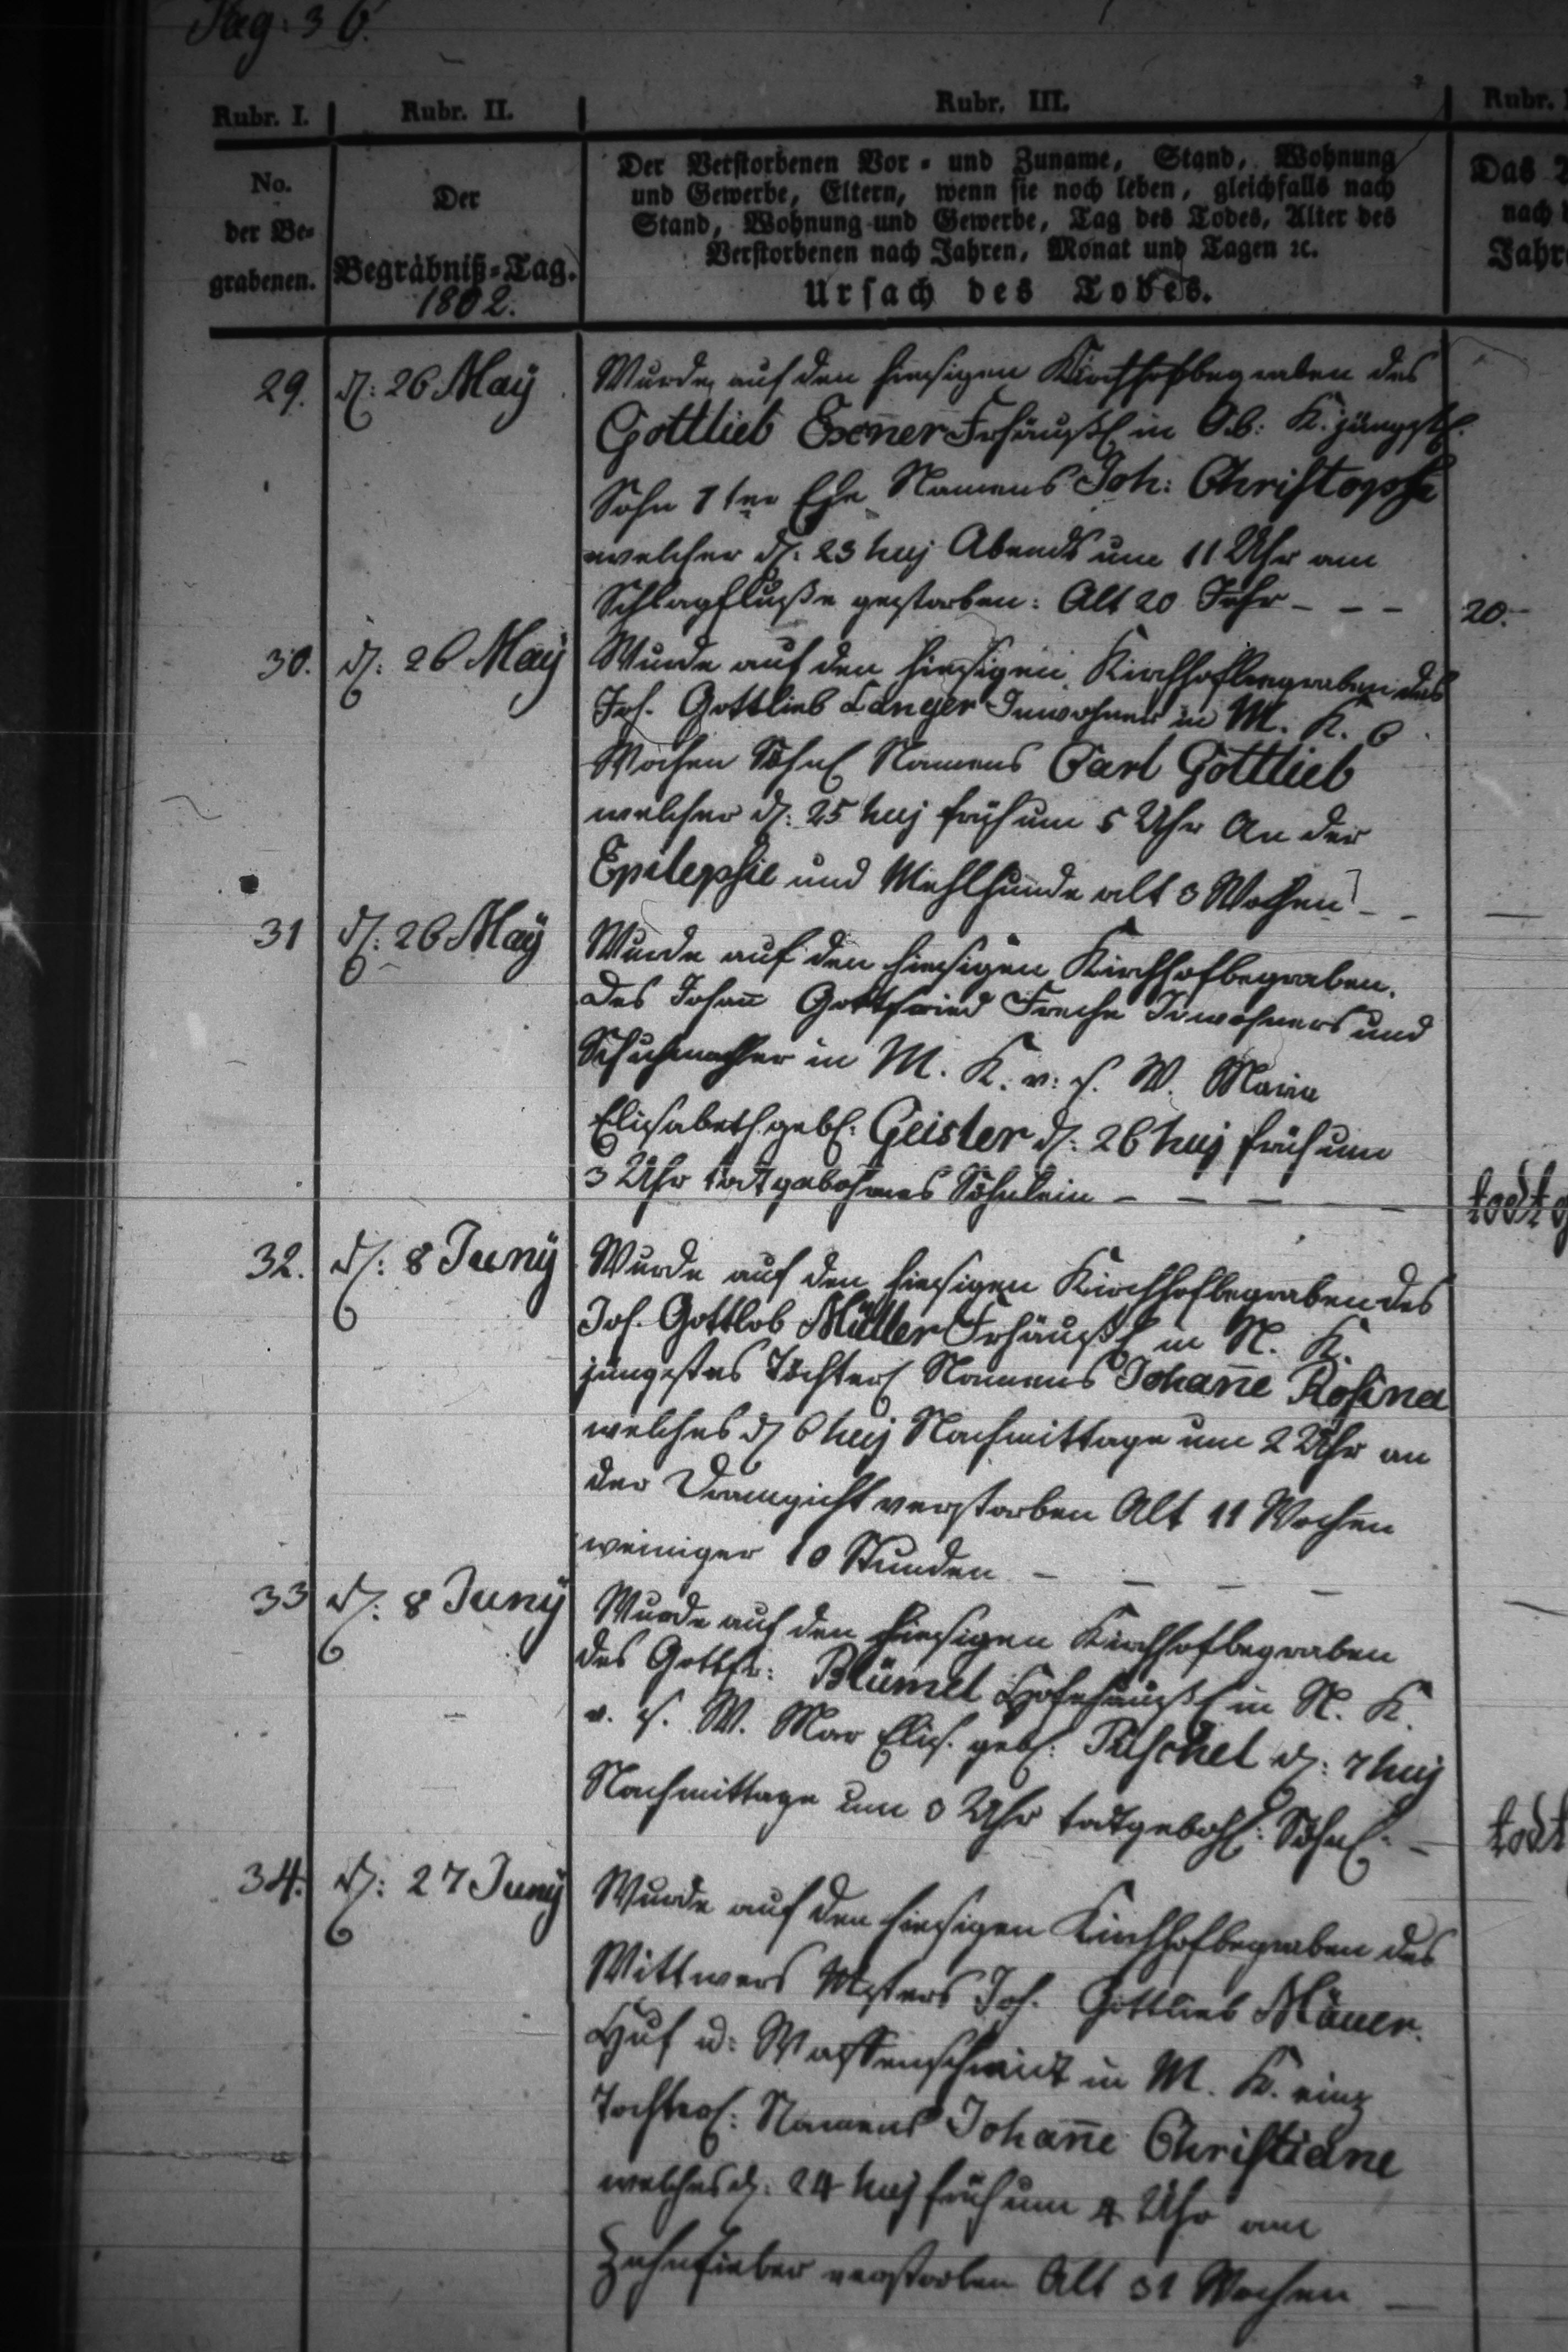 Pag: 36.
Rubr. I. Rubr. II. Rubr. III. Rubr.
No. der Be- grabenen.
Der Begräbniß-Tag. 1802.
Der Verstorbenen Vor- und Zuname, Stand, Wohnung
und Gewerbe, Eltern, wenn sie noch leben, gleichfalls nach
Stand, Wohnung und Gewerbe, Tag des Todes, Alter des
Verstorbenen nach Jahren, Monat und Tagen ꝛc.
Ursach des Todes.
Das
nach
Jahr
29. d. 26 Maÿ Wurde auf den hiesigen Kirchhof begraben des
Gottlieb Exner Frhäußl in Ob: K. jüngst
Sohn 1ter Ehe Namens Joh: Christoph
welcher d. 23 huj Abends um 11 Uhr am
Schlagfluße gestorben: Alt 20 Jahr - - - 20.
30. d. 26 Maÿ Wurde auf den hiesigen Kirchhof begraben des
Joh. Gottlieb Langer Inwohner in M. K.
Wochen Söhnl Namens Carl Gottlieb
welcher d. 25 huj früh um 5 Uhr An der
Epilepsie und alt 3 Wochen - -
31 d. 26 Maÿ Wurde auf den hiesigen Kirchhof begraben.
des Johañ Gottfried Inwohners und
Schuhmacher in M. K. v. s. W. Maria
Elisabeth geb. Geisler d. 26 huj früh um
3 Uhr todtgebohrnes Söhnlein - - - - todtg
32. d. 8 Junÿ Wurde auf den hiesigen Kirchhof begraben des
Joh. Gottlob Müller Frhäußl in N. K.
jüngstes Töchterl Namens Johañe Rosina
welches d. 6 huj Nachmittage um 2 Uhr an
der verstorben Alt 11 Wochen
weniger 10 Stunden - - - -
33 d. 8 Junÿ Wurde auf den hiesigen Kirchhof begraben
des Gottfr: Blümel Hofehäußl in N. K.
v. s. W. Mar Elis. geb. Püschel d. 7 huj
Nachmittage um 3 Uhr todtgeboh: Söhnl. - todt
34. d. 27 Junÿ Wurde auf den hiesigen Kirchhof begraben des
Wittwers Msters Joh. Gottlieb Mäuer.
Huf u: Waffenschmidt in M. K. einz
Töchterl: Namens Johañe Christiane
welches d. 24 huj früh um 4 Uhr am
Zahnfieber verstorben Alt 31 Wochen -